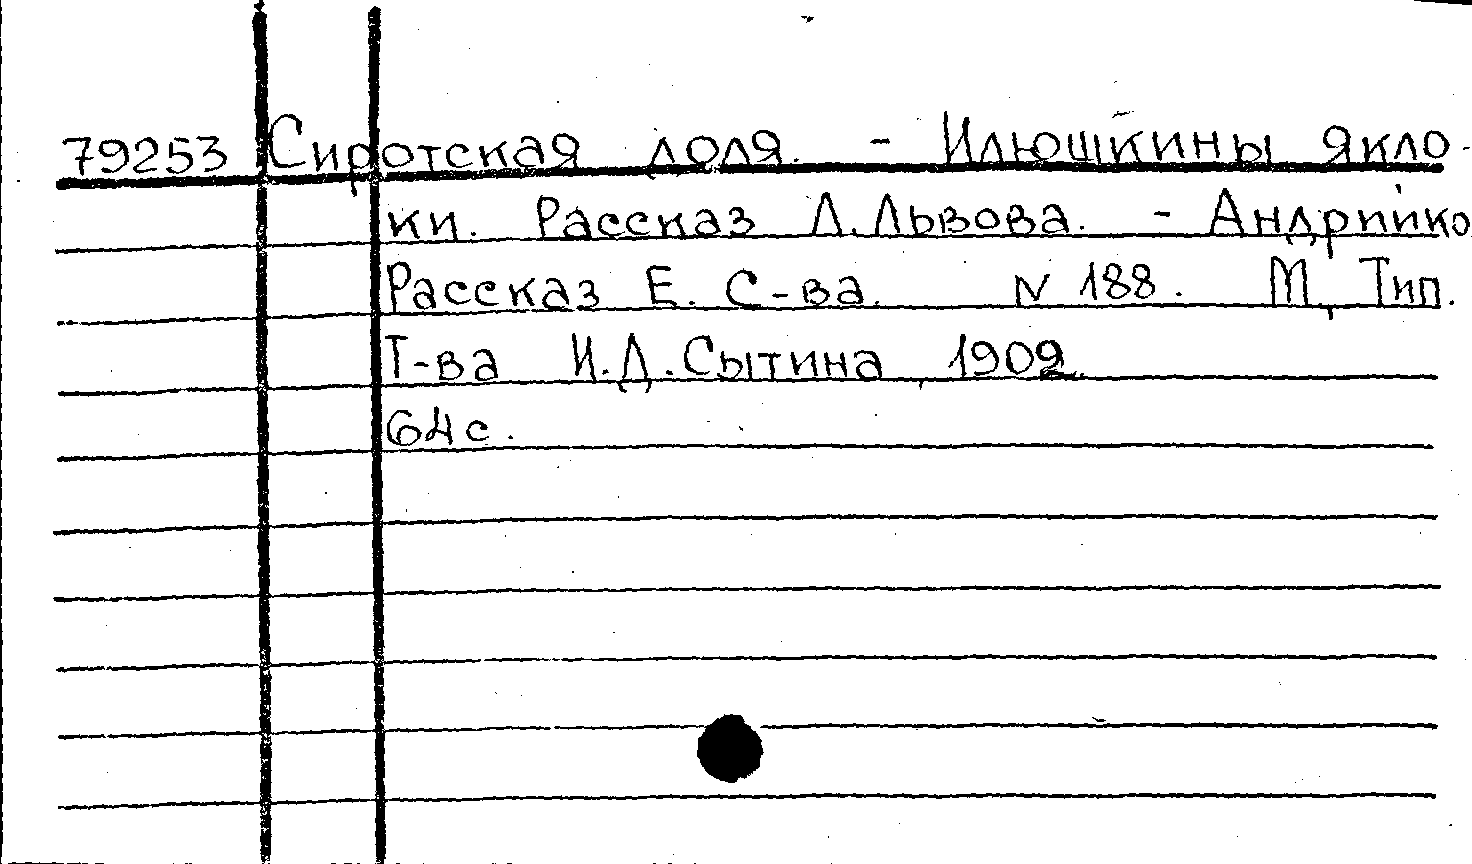 79253 Сиротская доля. - Илюшкины якло-
ки. Рассказ Л. Львова. - Андрийко
Рассказ Е. С-ва. N 188. М, Тип.
Т-ва И.Д.Сытина, 1902.
64с.